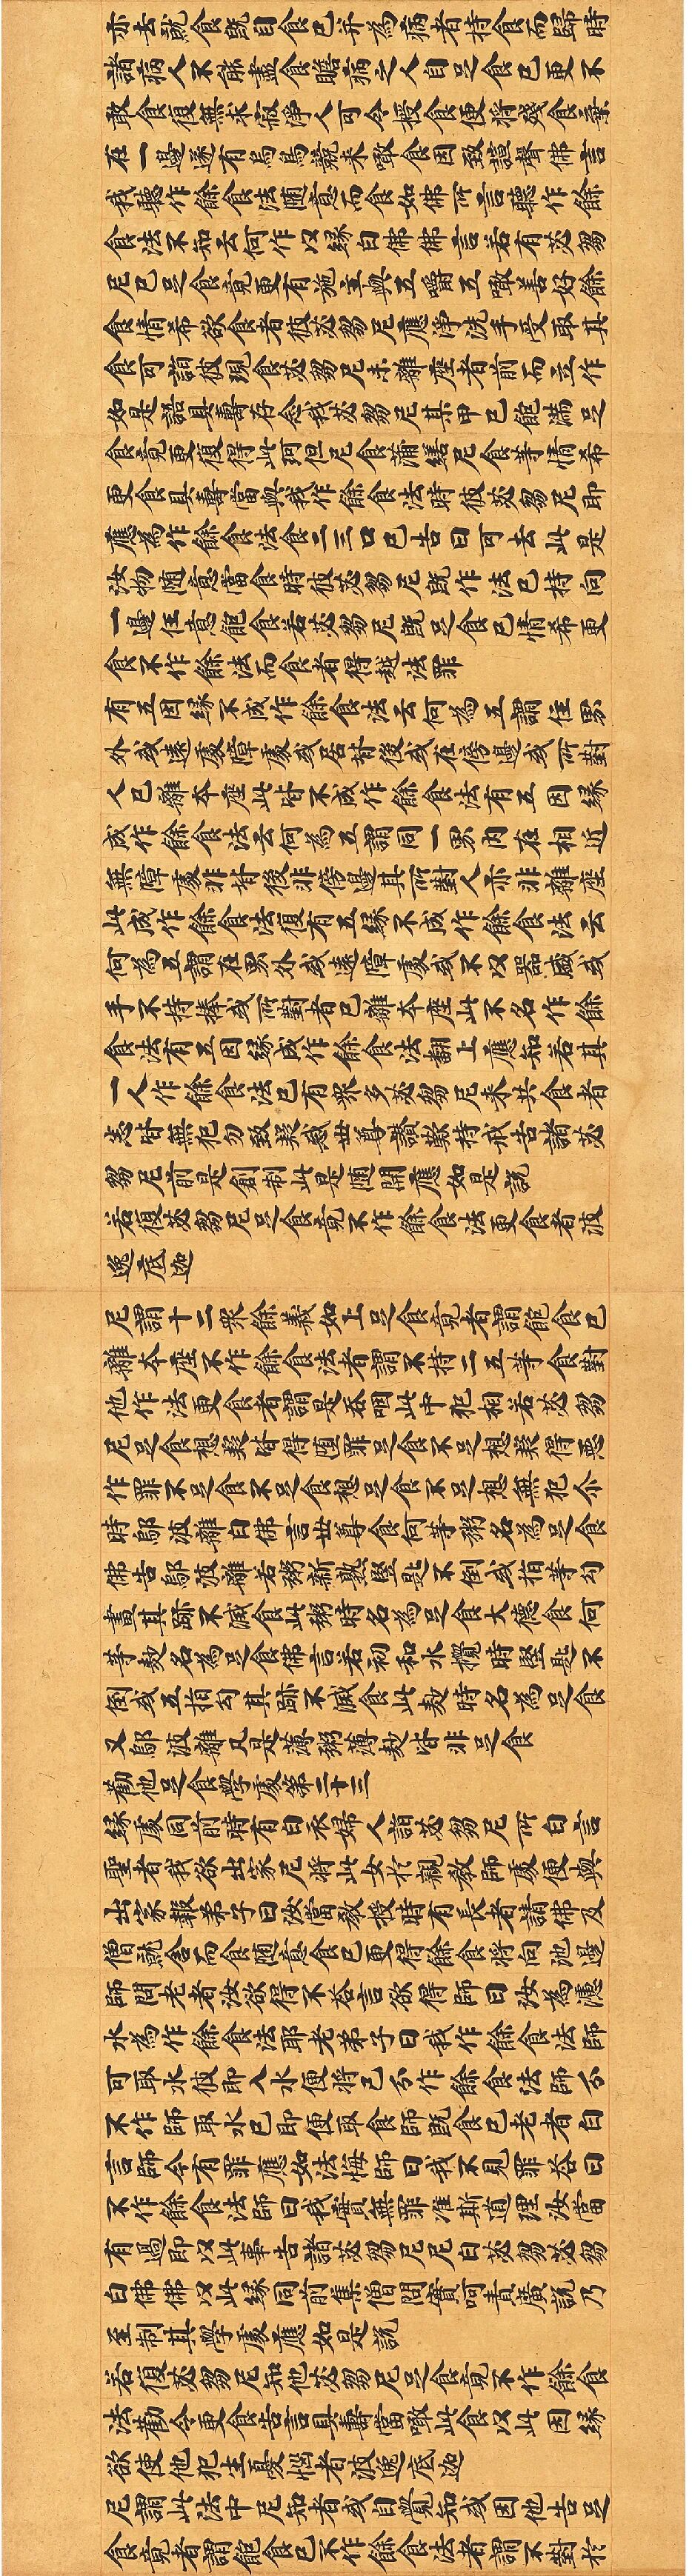 亦去就食既自食已并為病者持食而歸時
諸病人不能盡食瞻病之人自足食已更不
敢食復無求寂淨人可令授食便將殘食棄
在一邊遂有烏鳥競來噉食因致諠聲佛言
我聽作餘食法隨意而食如佛所言聽作餘
食法不知云何作以緣白佛佛言若有苾芻
尼已足食竟更有施主與五嚼五噉善好餘
食情希欲食者彼苾芻尼應淨洗手受取其
食可詣彼現食苾芻尼未離座者前而立作
如是語具壽存念我苾芻尼某甲已飽滿足
食竟更復得此珂但尼食蒲繕尼食等情希
更食具壽當與我作餘食法時彼苾芻尼即
應為作餘食法食二三口已告曰可去此是
汝物隨意當食時彼苾芻尼既作法已持向
一邊任意飽食若苾芻尼既足食已情希更
食不作餘法而食者得越法罪
有五因緣不成作餘食法云何為五謂住界
外或遠處障處或居背後或在傍邊或所對
人已離本座此皆不成作餘食法有五因緣
成作餘食法云何為五謂同一界內在相近
無障處非背後非傍邊其所對人亦非離座
此成作餘食法復有五緣不成作餘食法云
何為五謂在界外或遠障處或不以器盛或
手不持捧或所對者已離本座此不名作餘
食法有五因緣成作餘食法翻上應知若其
一人作餘食法已有眾多苾芻尼來共食者
悉皆無犯勿致疑惑世尊讚歎持戒告諸苾
芻尼前是創制此是隨開應如是說
若復苾芻尼足食竟不作餘食法更食者波
逸底迦
尼謂十二眾餘義如上足食竟者謂飽食已
離本座不作餘食法者謂不持二五等食對
他作法更食者謂是吞咽此中犯相若苾芻
尼足食想疑皆得墮罪足食不足想疑得惡
作罪不足食不足食想足食不足想無犯尒
時鄔波離白佛言世尊食何等粥名為足食
佛告鄔波離若粥新熟豎匙不倒或指等勾
畫其跡不滅食此粥時名為足食大德食何
等麨名為足食佛言若初和水攪時豎匙不
倒或五指勾其跡不滅食此麨時名為足食
又鄔波離凡是薄粥薄麨皆非足食
勸他足食學處第二十三
緣處同前時有白衣婦人詣苾芻尼所白言
聖者我欲出家尼將此女於親教師處便與
出家報弟子曰汝當教授時有長者請佛及
僧就舍而食隨意食已更得餘食將向池邊
師問老者汝欲得不荅言欲得師曰汝為濾
水為作餘食法耶老弟子曰我作餘食法師
可取水彼即入水便將己分作餘食法師分
不作師取水已即便取食師既食已老者白
言師今有罪應如法悔師曰我不見罪荅曰
不作餘食法師曰我實無罪准斯道理汝當
有過即以此事告諸苾芻尼尼白苾芻苾芻
白佛佛以此緣同前集僧問實呵責廣說乃
至制其學處應如是說
若復苾芻尼知他苾芻尼足食竟不作餘食
法勸令更食告言具壽當噉此食以此因緣
欲使他犯生憂惱者波逸底迦
尼謂此法中尼知者或自覺知或因他告足
食竟者謂飽食已不作餘食法者謂不對於